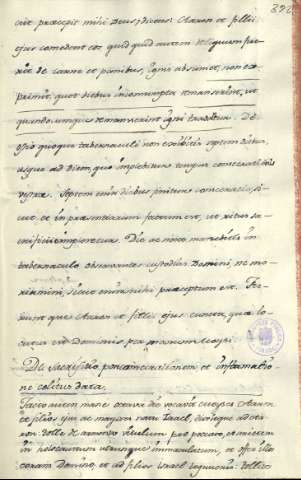 cut præcepit mihi Deus, dicens: Aaron et filii
ejus comedent eos quid quid autem reliquum fue-
rit de carne et panibus, ignis absumet, non ex
primit, quot diebus incorrupta remanserint, ut
quandoumque remanserint igni tradantur. De
ostio quoque tabernaculi non exibitis septem diebus,
usque ad diem, quo implebitur tempus consecrationis
vestræ. Septem enim diebus finitur consecratio, si
cut et in præsentiarum factum est, ut ritus sa-
crificii impleretur. Die ac nocte manebitis in
tabernaculo observantes custodias Domini, ne mo-
riemini, sicut enim mihi præceptum est. Fe-
cerunt que Aaron et filii ejus cuncta, quæ lo-
cutus est Dominus per manum Moysi.
De sacrificio post consecrationem et informatio-
ne celitus data.
Facto autem
octavo die vocavit Moyses Aaron
et filios ejus ac majores natu Israel, dixitque ad Aa-
ron: tolle de armento vitulum pro peccato, et arietem
in holocaustum utrumque immaculatum, et offer illos
coram Domino, et ad filios Israel loqueris: tollite